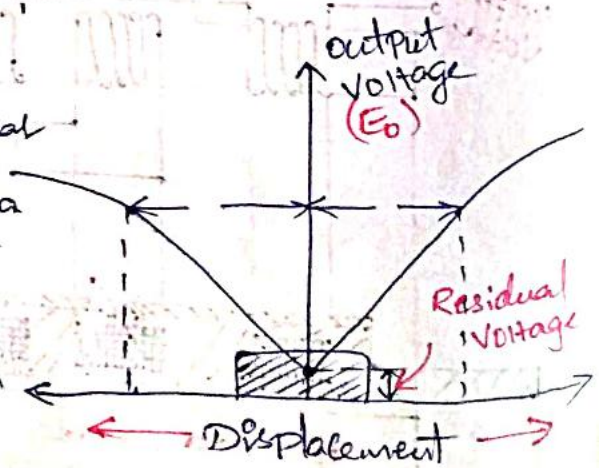 output
voltage
(E₀)
al
a
Residual
voltage
Displacement